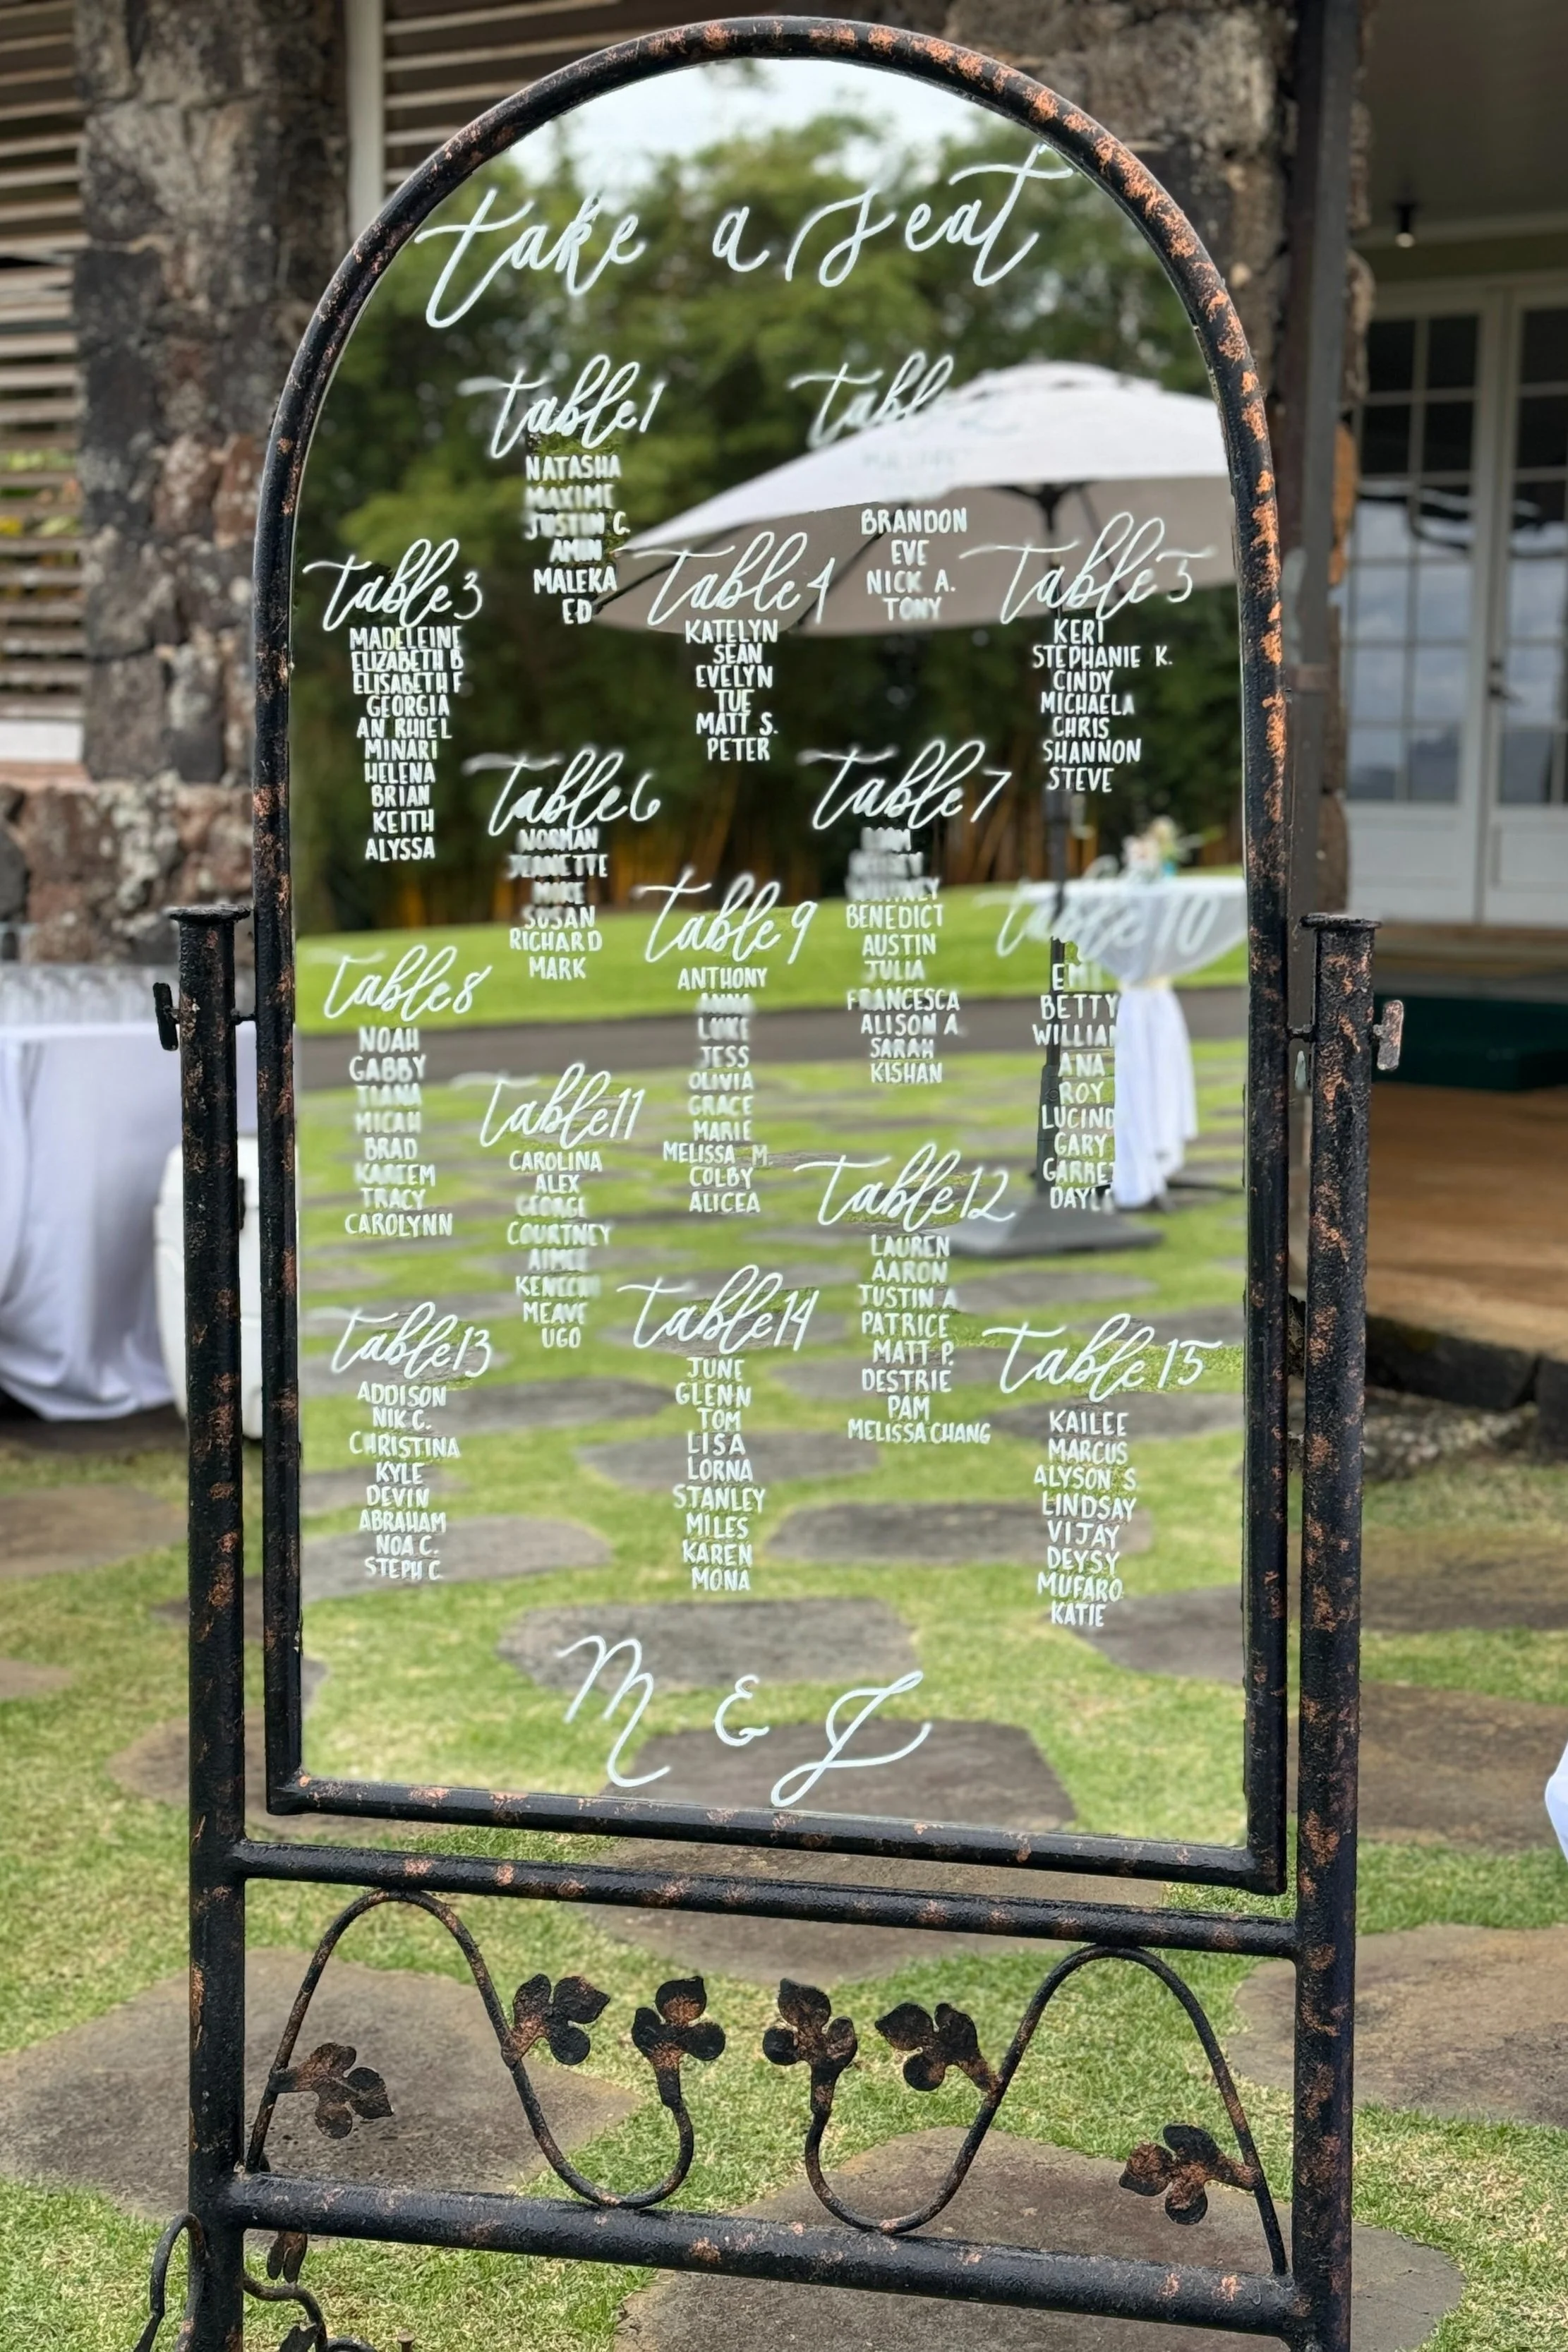 take a seat
table 1
NATASHA
MAXIME
JUSTIN C.
AMIN
MALEKA
ED
table 2
BRANDON
EVE
NICK A.
TONY
table 3
MADELEINE
ELIZABETH B
ELISABETH F
GEORGIA
AN RHIEL
MINARI
HELENA
BRIAN
KEITH
ALYSSA
table 4
KATELYN
SEAN
EVELYN
TUE
MATT S.
PETER
table 5
KERI
STEPHANIE K.
CINDY
MICHAELA
CHRIS
SHANNON
STEVE
table 6
NORMAN
JEANETTE
MIKE
SUSAN
RICHARD
MARK
table 7
WHITNEY
BENEDICT
AUSTIN
JULIA
FRANCESCA
ALISON A.
SARAH
KISHAN
table 8
NOAH
GABBY
TIANA
MICAH
BRAD
KAREEM
TRACY
CAROLYNN
table 9
ANTHONY
ANNA
LUKE
JESS
OLIVIA
GRACE
MARIE
MELISSA M
COLBY
ALICEA
table 10
BETTY
WILLIAM
ANA
ROY
GARY
table 11
CAROLINA
ALEX
GEORGE
COURTNEY
AIMEE
MEAVE
UGO
table 12
LAUREN
AARON
JUSTIN A
PATRICE
MATT P.
DESTRIE
PAM
MELISSA CHANG
table 13
ADDISON
NIK C.
CHRISTINA
KYLE
DEVIN
ABRAHAM
NOA C.
STEPH C.
table 14
JUNE
GLENN
TOM
LISA
LORNA
STANLEY
MILES
KAREN
MONA
table 15
KAILEE
MARCUS
ALYSON S.
LINDSAY
VIJAY
DEYSY
MUFARO
KATIE
M & J